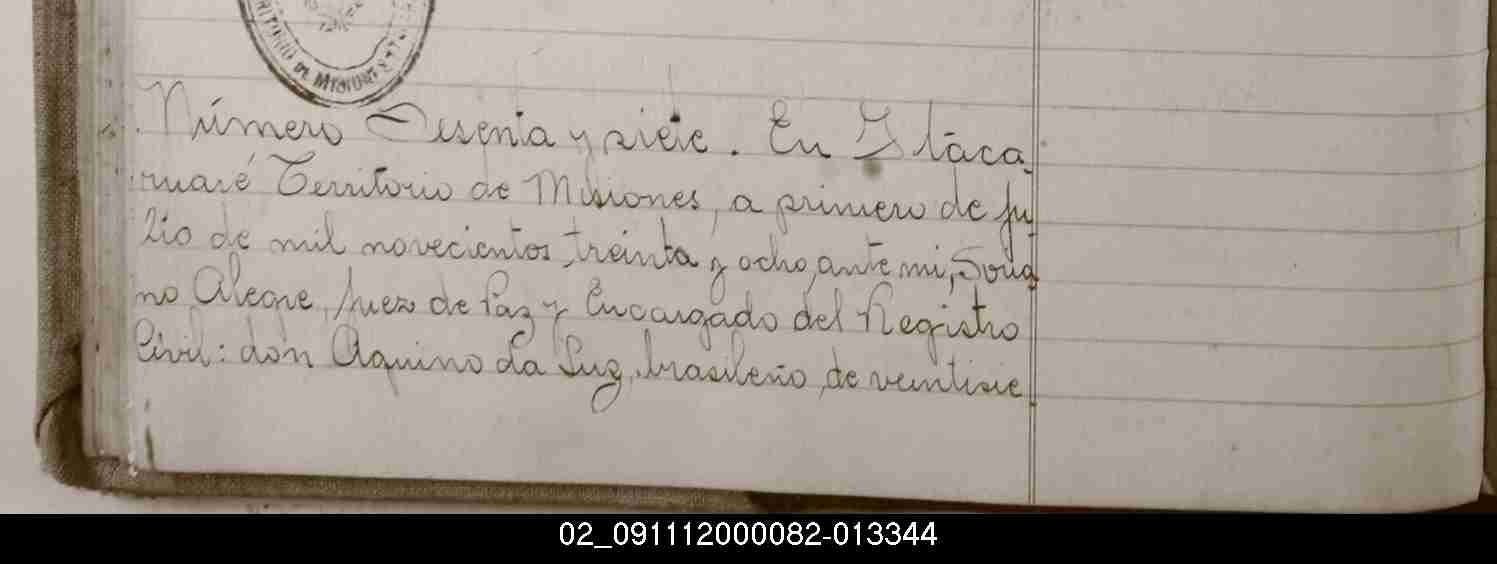 TERRITORIO DE MISIONES
Número Sesenta y siete. En Itaca
ruaré Territorio de Misiones, a primero de Ju
lio de mil novecientos treinta y ocho, ante mi,
no Alegre, Juez de Paz y Encargado del Registro
Civil: don Aquino da Luz, brasileño, de veintisie
02_091112000082-013344